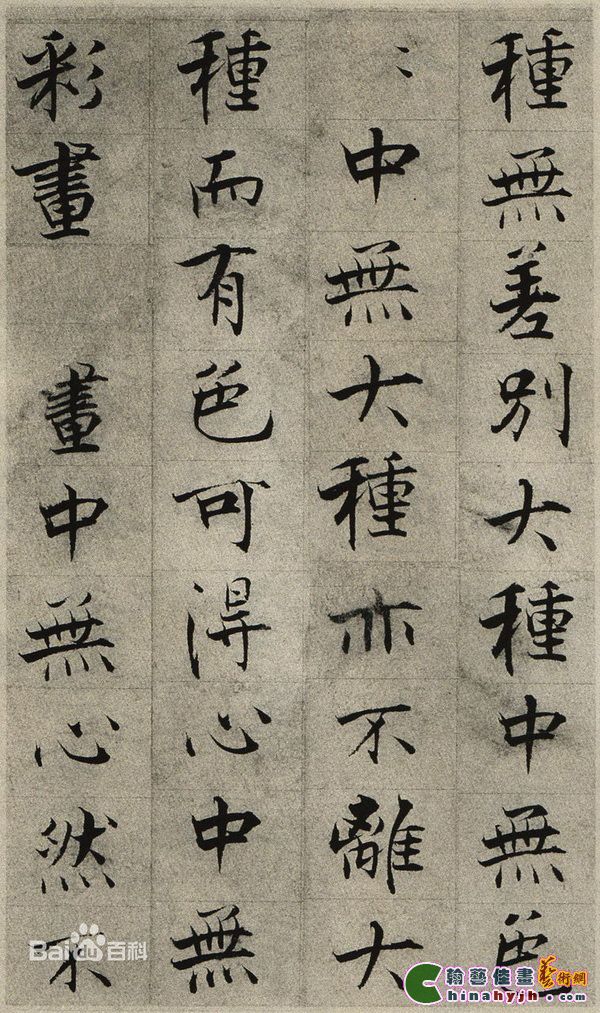 種無差別大種中無色
〻中無大種亦不離大
種而有色可得心中無
彩畫畫中無心然不
Baidu百科
翰藝佳畫藝術網
Chinahyjh.com